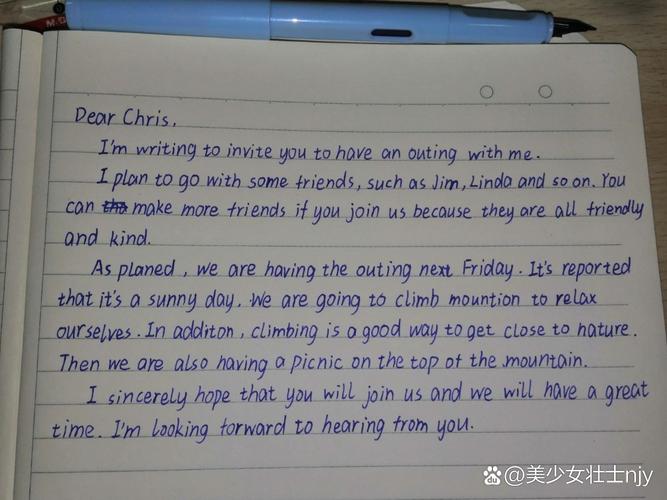 Dear Chris,
I'm writing to invite you to have an outing with me.
I plan to go with some friends, such as Jim, Linda and so on. You
can tha make more friends if you join us because they are all friendly
and kind.
As planed, we are having the outing next Friday. It's reported
that it's a sunny day. We are going to climb mountion to relax
ourselves. In additon, climbing is a good way to get close to nature.
Then we are also having a picnic on the top of the mountain.
I sincerely hope that you will join us and we will have a great
time. I'm looking forward to hearing from you.
Bai du @美少女壮士njy